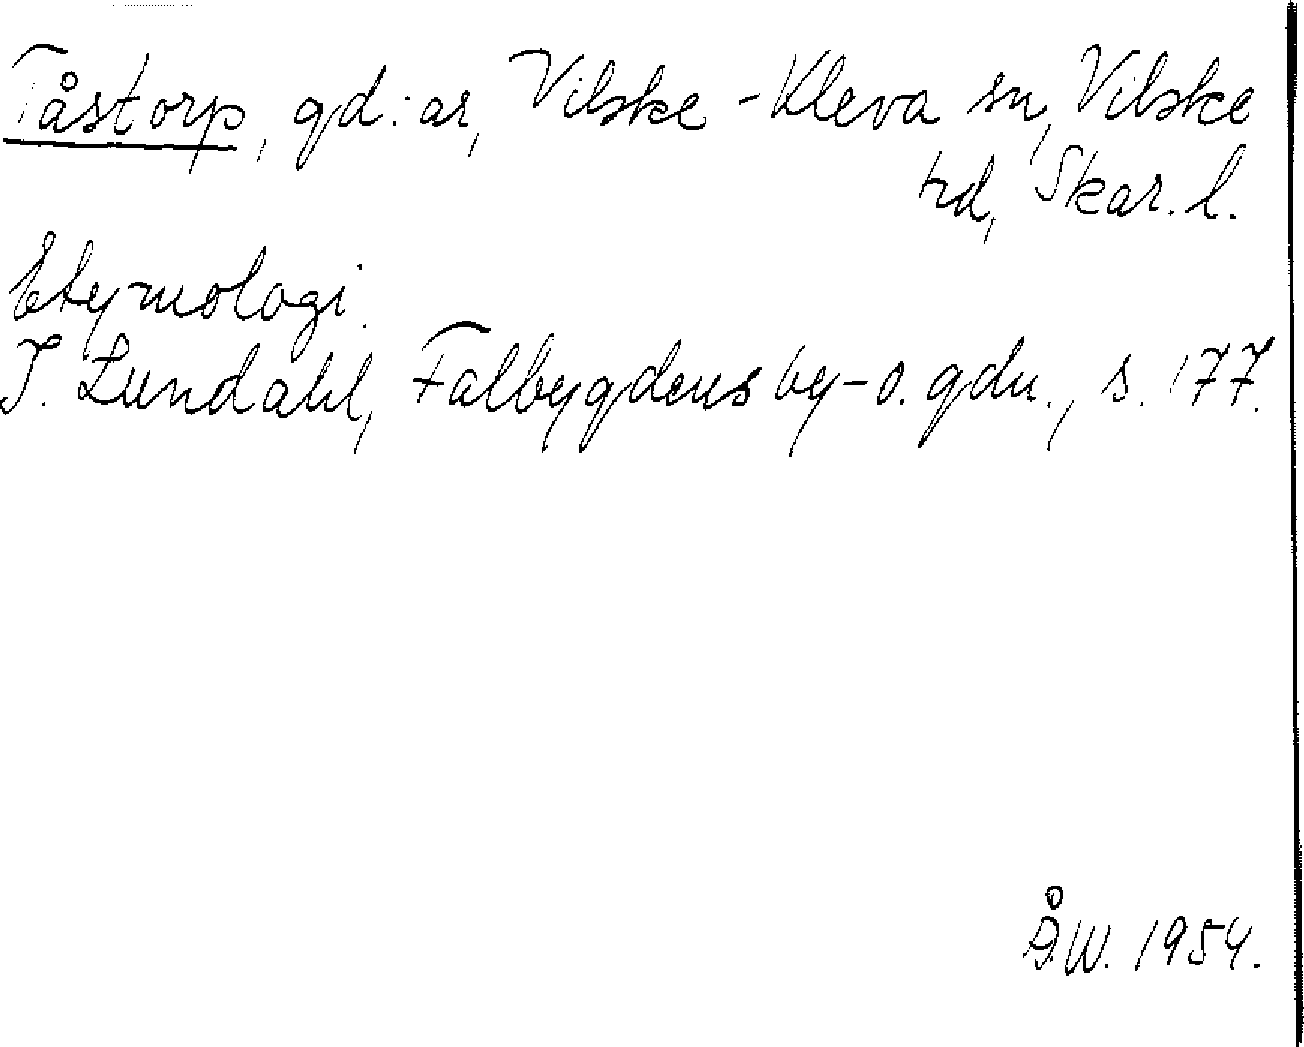 Tåstorp, gd:ar, Vilske-Kleva sn, Vilske
hd, Skar. l.
Etymologi.
I. Lundahl, Falbygdens by- o. gdn., s. 177.
Å.W. 1954.